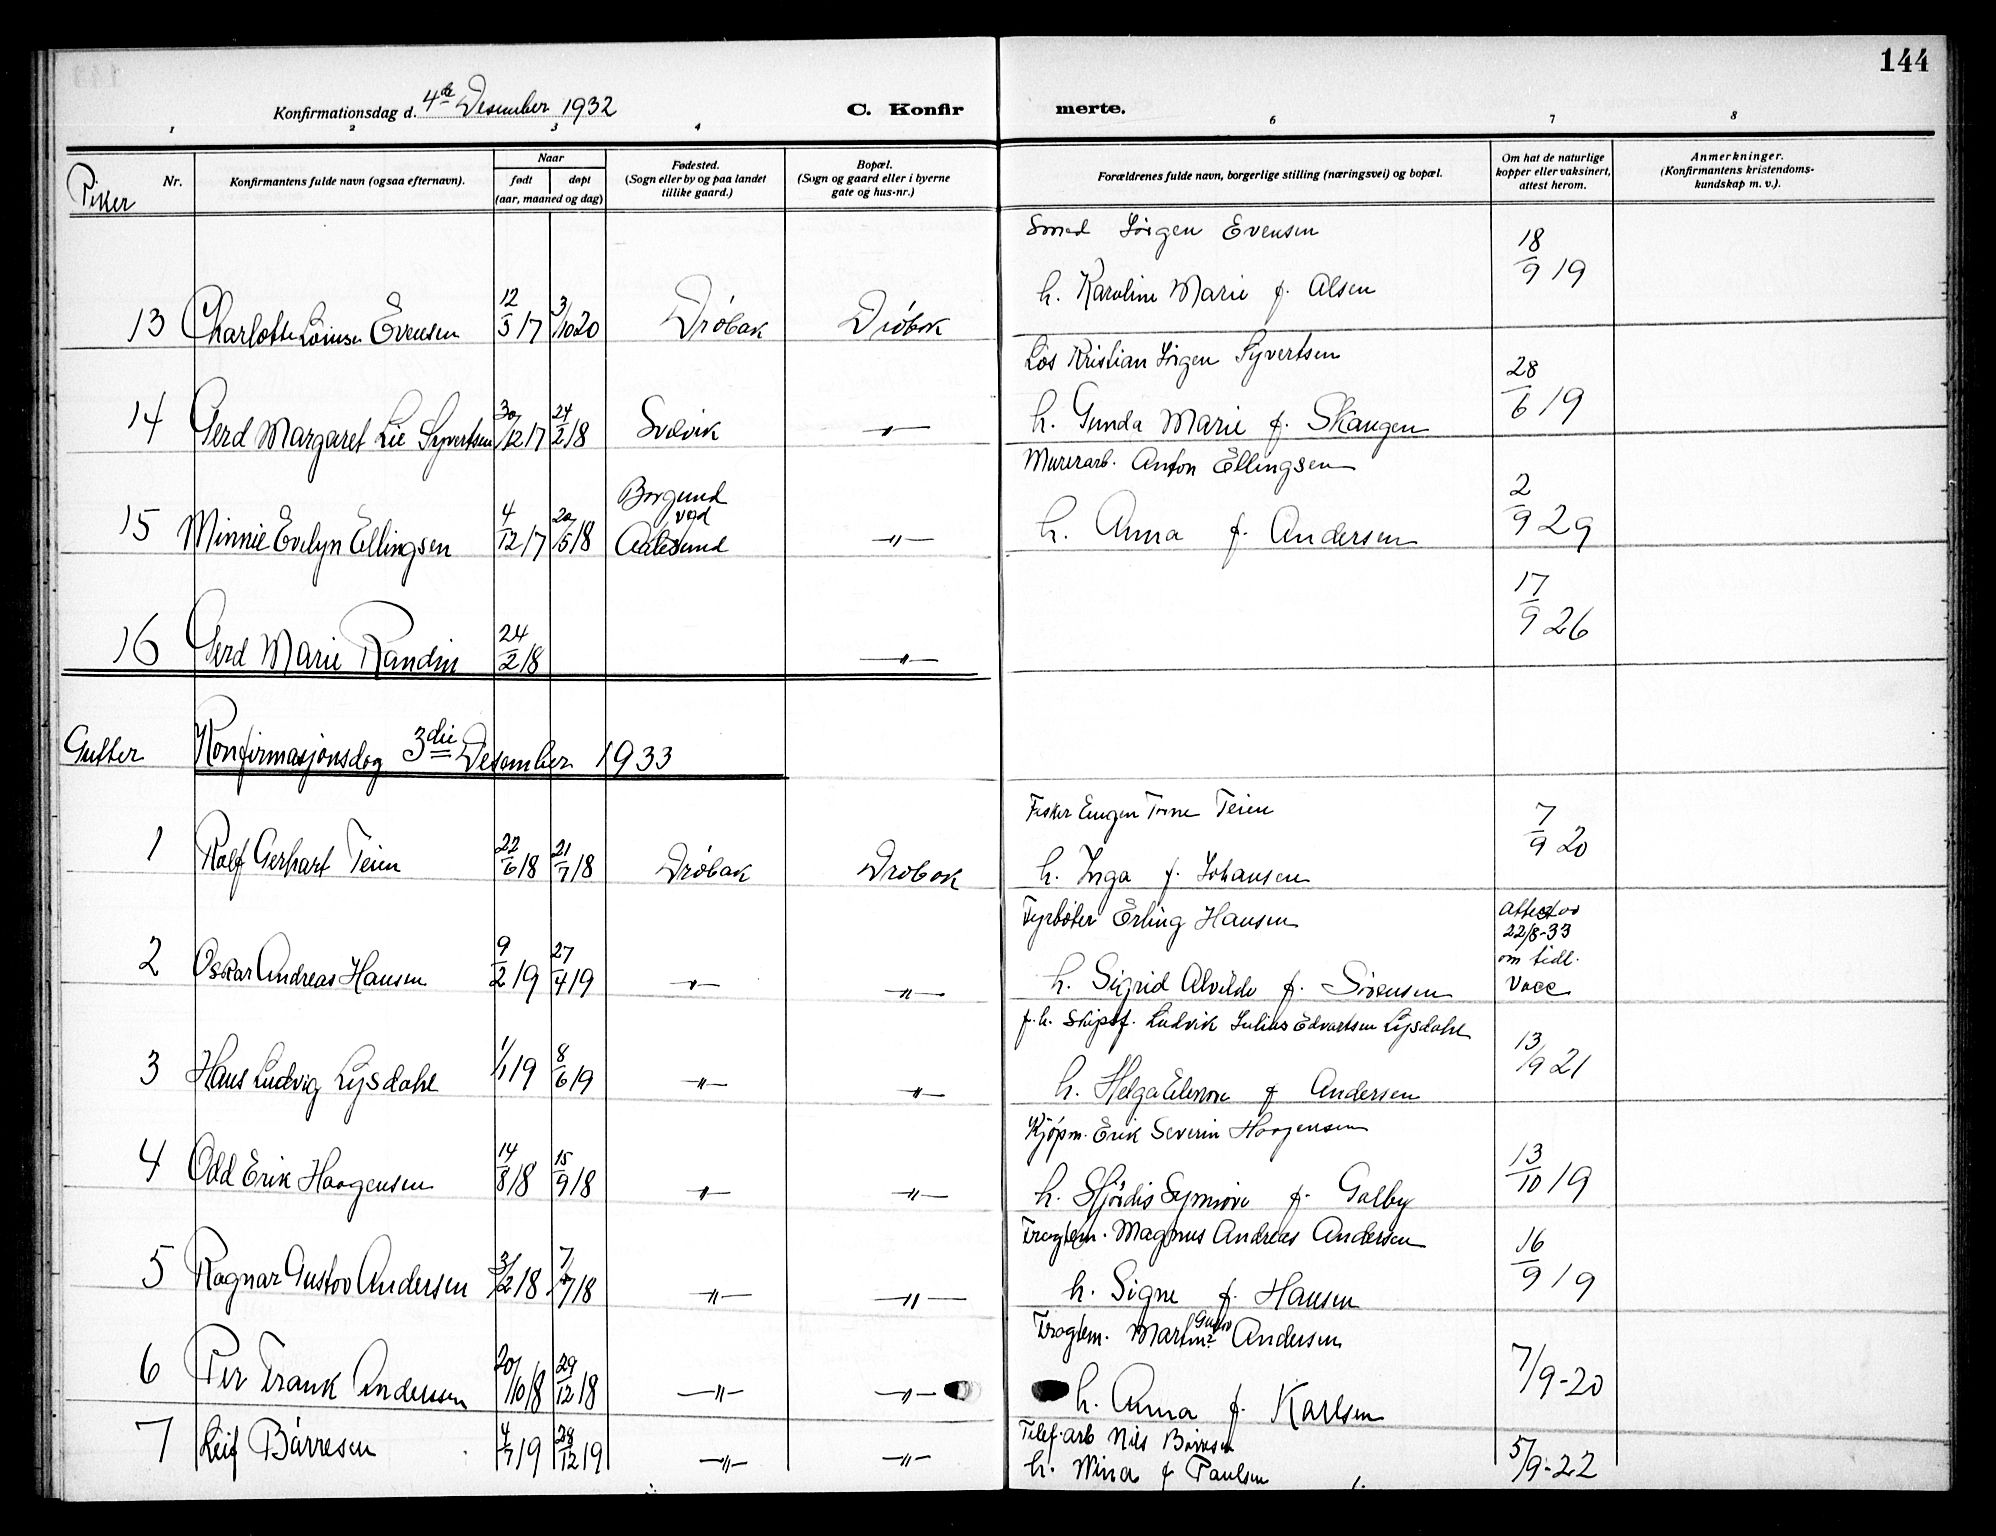 144
Konfirmationsdag d. 4de Desember 1932 C. Konfir merte.
1 2 3 4 6 7 8
Piker Nr. Konfirmantens fulde navn (ogsaa efternavn). Naar født døpt (aar, maaned og dag) Fødested. (Sogn eller by og paa landet tillike gaard.) Bopæl. (Sogn og gaard eller i byerne gate og hus-nr.) Forældrenes fulde navn, borgerlige stilling (næringsvei) og bopæl. Om hat de naturlige kopper eller vaksinert, attest herom. Anmerkninger. (Konfirmantens kristendoms- kundskap m. v.).
Smed Jörgen Evensen
13 Charlotte Lovise Evensen 12/5 17 3/10 20 Dröbak Dröbak h. Karoline Marie f. Olsen 18/9 19
Los Kristian Jörgen Syvertsen
14 Gerd Margaret Lie Syvertsen 30/12 17 24/2 18 Svelvik -"- h. Gunda Marie f. Skaugen 28/6 19
Murerarb. Anton Ellingsen
15 Minnie Evelyn Ellingsen 4/12 17 20/5 18 Borgund ved Aalesund -"- h. Anna f. Andersen 2/9 29
16 Gerd Marie Randin 24/2 18 -"- 17/9 26
Gutter Konfirmasjonsdag 3die Desember 1933
Fisker Eugen Teien
1 Rolf Gerhart Teien 22/6 18 21/7 18 Dröbak Dröbak h. Inga f. Johansen 7/9 20
Fyrböter Erling Hansen
2 Oskar Andreas Hansen 9/2 19 27/4 19 -"- -"- h. Sigrid Alvilde f. Sörensen Attest av 22/8-33 om tidl. vacc
f. h. Skipsf. Ludvik Julius Edvartsen Lysdahl
3 Hans Ludvig Lysdahl 1/1 19 8/6 19 -"- -"- h. Helga Elenore f Andersen 13/9 21
Kjöpm. Erik Severin Haagensen
4 Odd Erik Haagensen 14/8 18 15/9 18 -"- -"- h. Hjördis Synnöve f. Galby 13/10 19
Fragtem. Magnus Andreas Andersen
5 Ragnar Gustav Andersen 3/2 18 7/7 18 -"- -"- h. Signe f. Hansen 16/9 19
Fragtem. Martin Gustav Andersen
6 Per Frank Andersen 20/10 18 29/12 18 -"- -"- h. Anna f. Karlsen 7/9-20
Telef.arb Nils Börresen
7 Leif Börresen 4/7 19 28/12 19 -"- -"- h. Nina f Paulsen 5/9-22